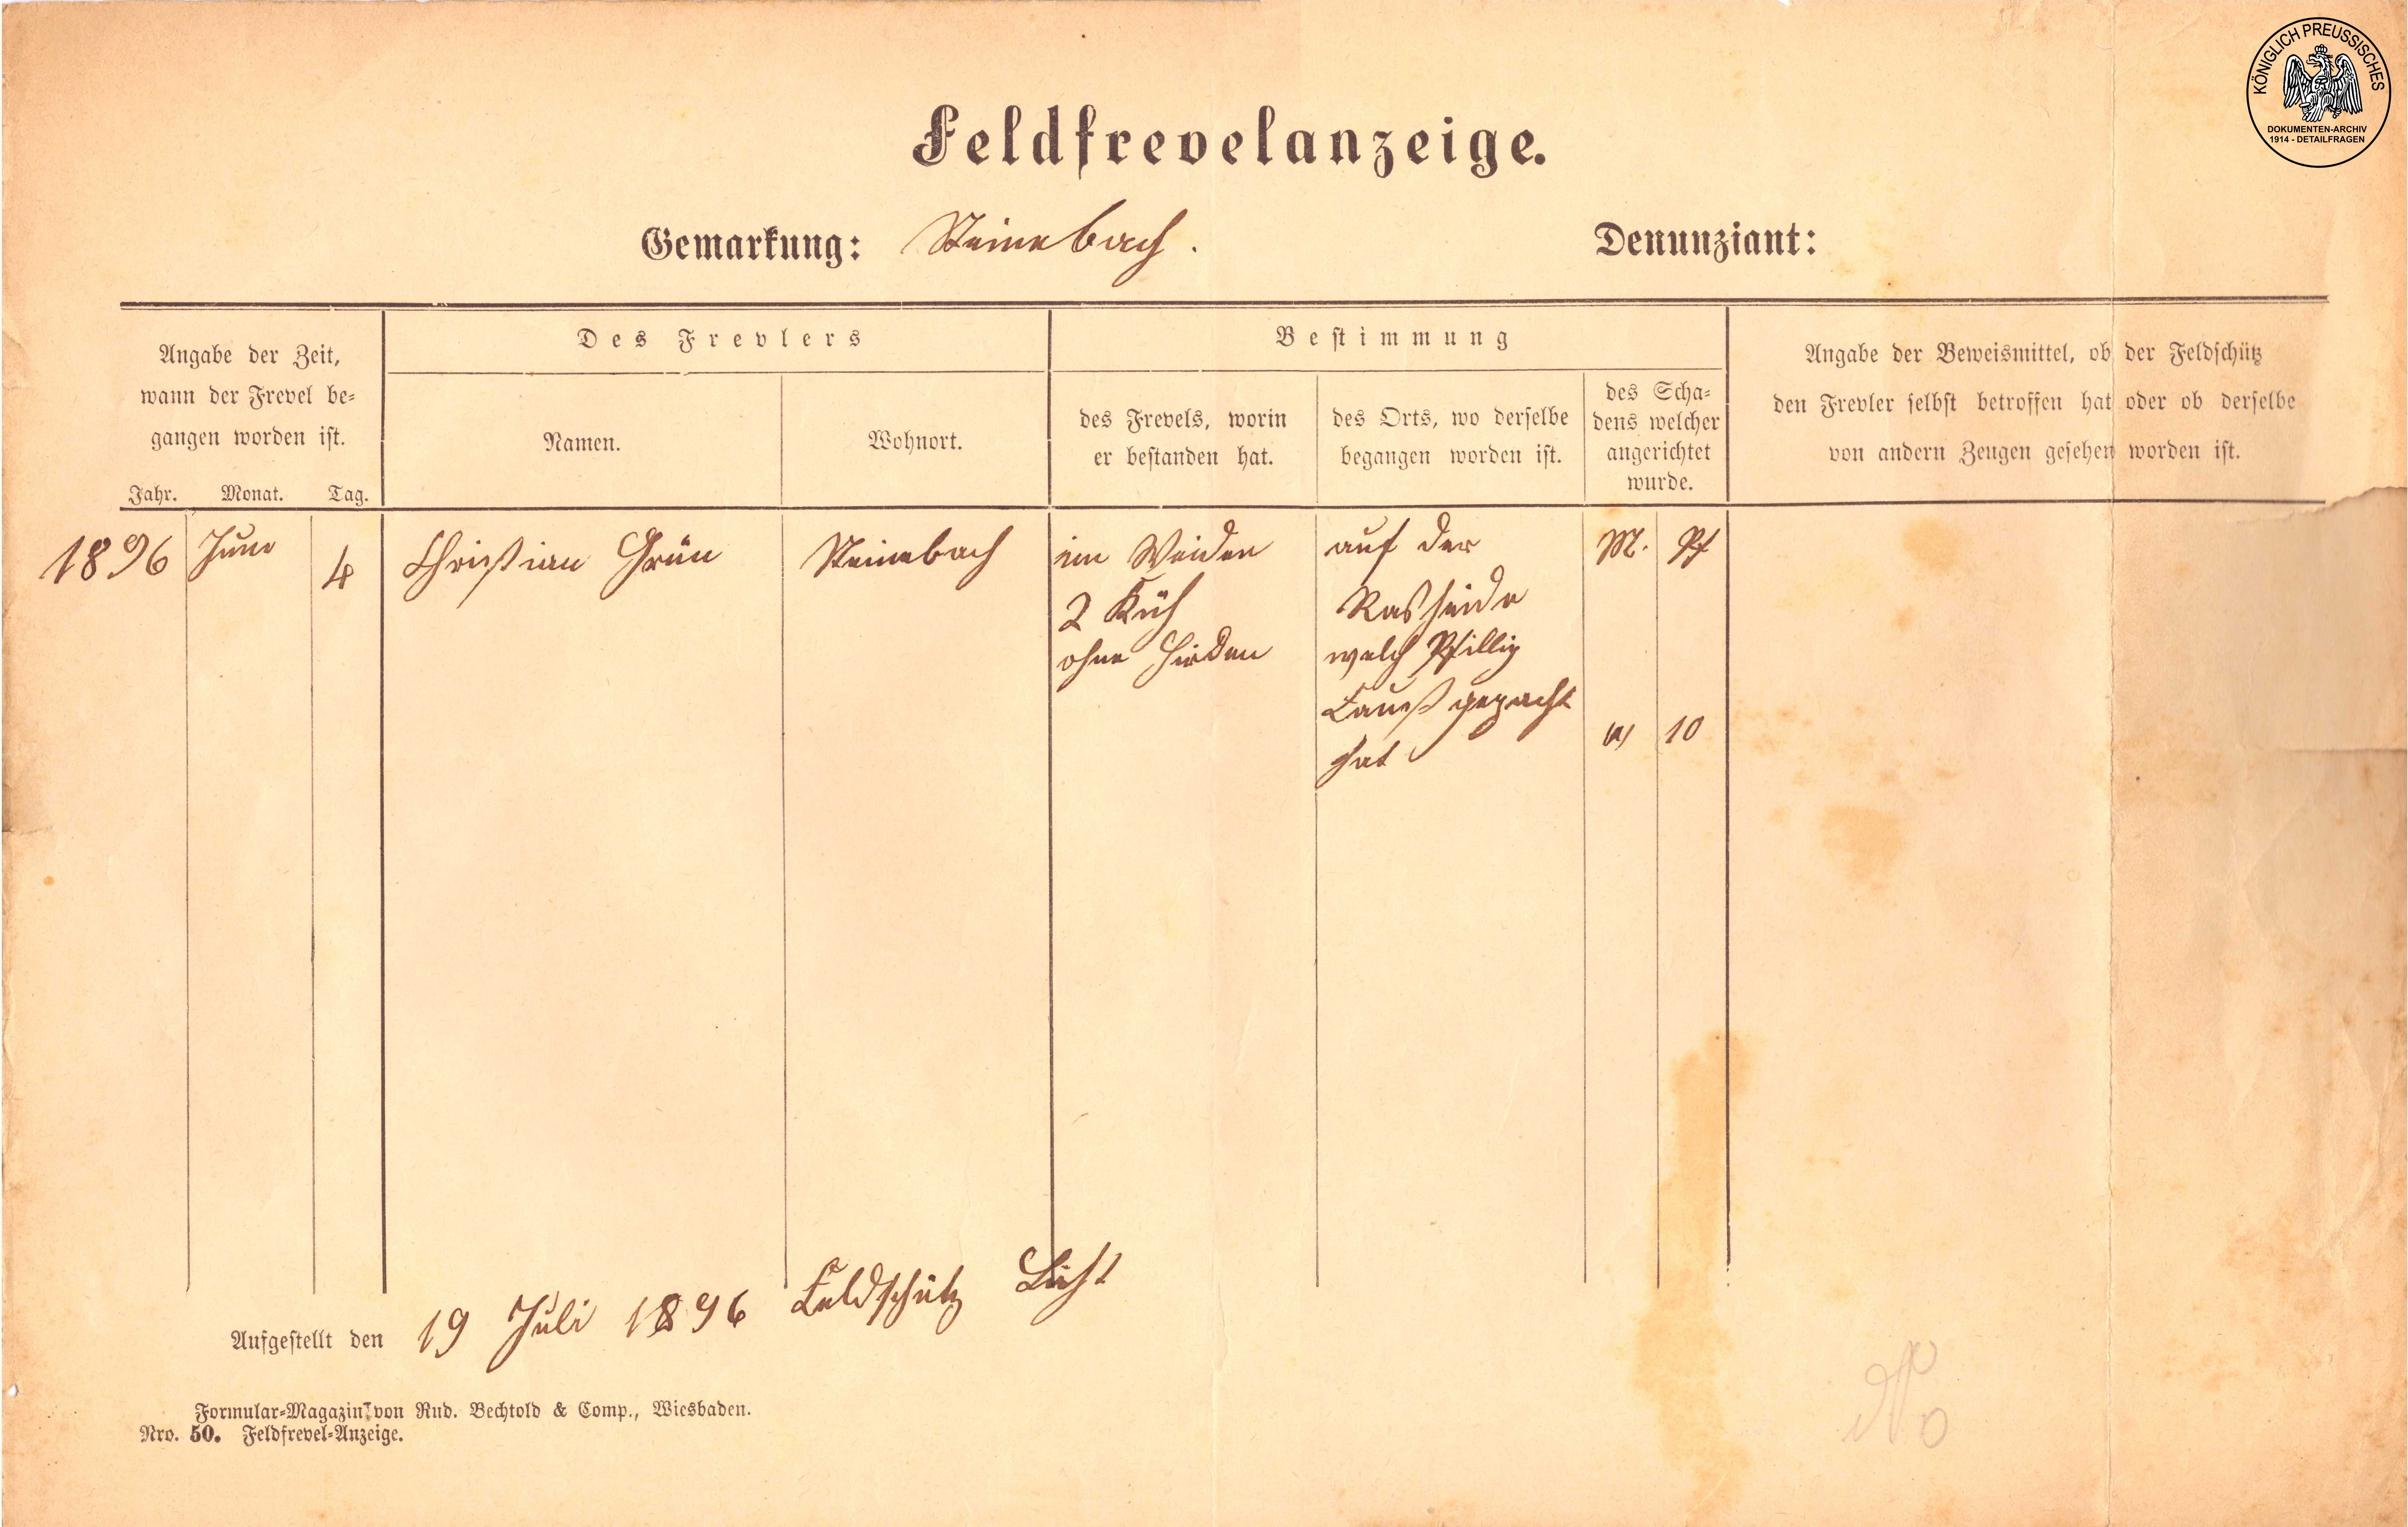 KÖNIGLICH PREUSSISCHES
DOKUMENTEN-ARCHIV
1914 - DETAILFRAGEN
Feldfrevelanzeige.
Gemarkung: Steinebach.
Denunziant:
Angabe der Zeit,
wann der Frevel be-
gangen worden ist.
Jahr. Monat. Tag.
Des Frevlers
Namen.
Wohnort.
Bestimmung
des Frevels, worin
er bestanden hat.
des Orts, wo derselbe
begangen worden ist.
des Scha-
dens welcher
angerichtet
wurde.
Angabe der Beweismittel, ob der Feldschütz
den Frevler selbst betroffen hat oder ob derselbe
von andern Zeugen gesehen worden ist.
1896 Juni 4
Christian Grün
Steinebach
im Weiden
2 Küh
ohne Hirden
auf der
welch
gepacht
hat
M. Pf
10
Aufgestellt den 19 Juli 1896 Feldschütz Licht
Formular-Magazin von Rud. Bechtold & Comp., Wiesbaden.
Nro. 50. Feldfrevel-Anzeige.